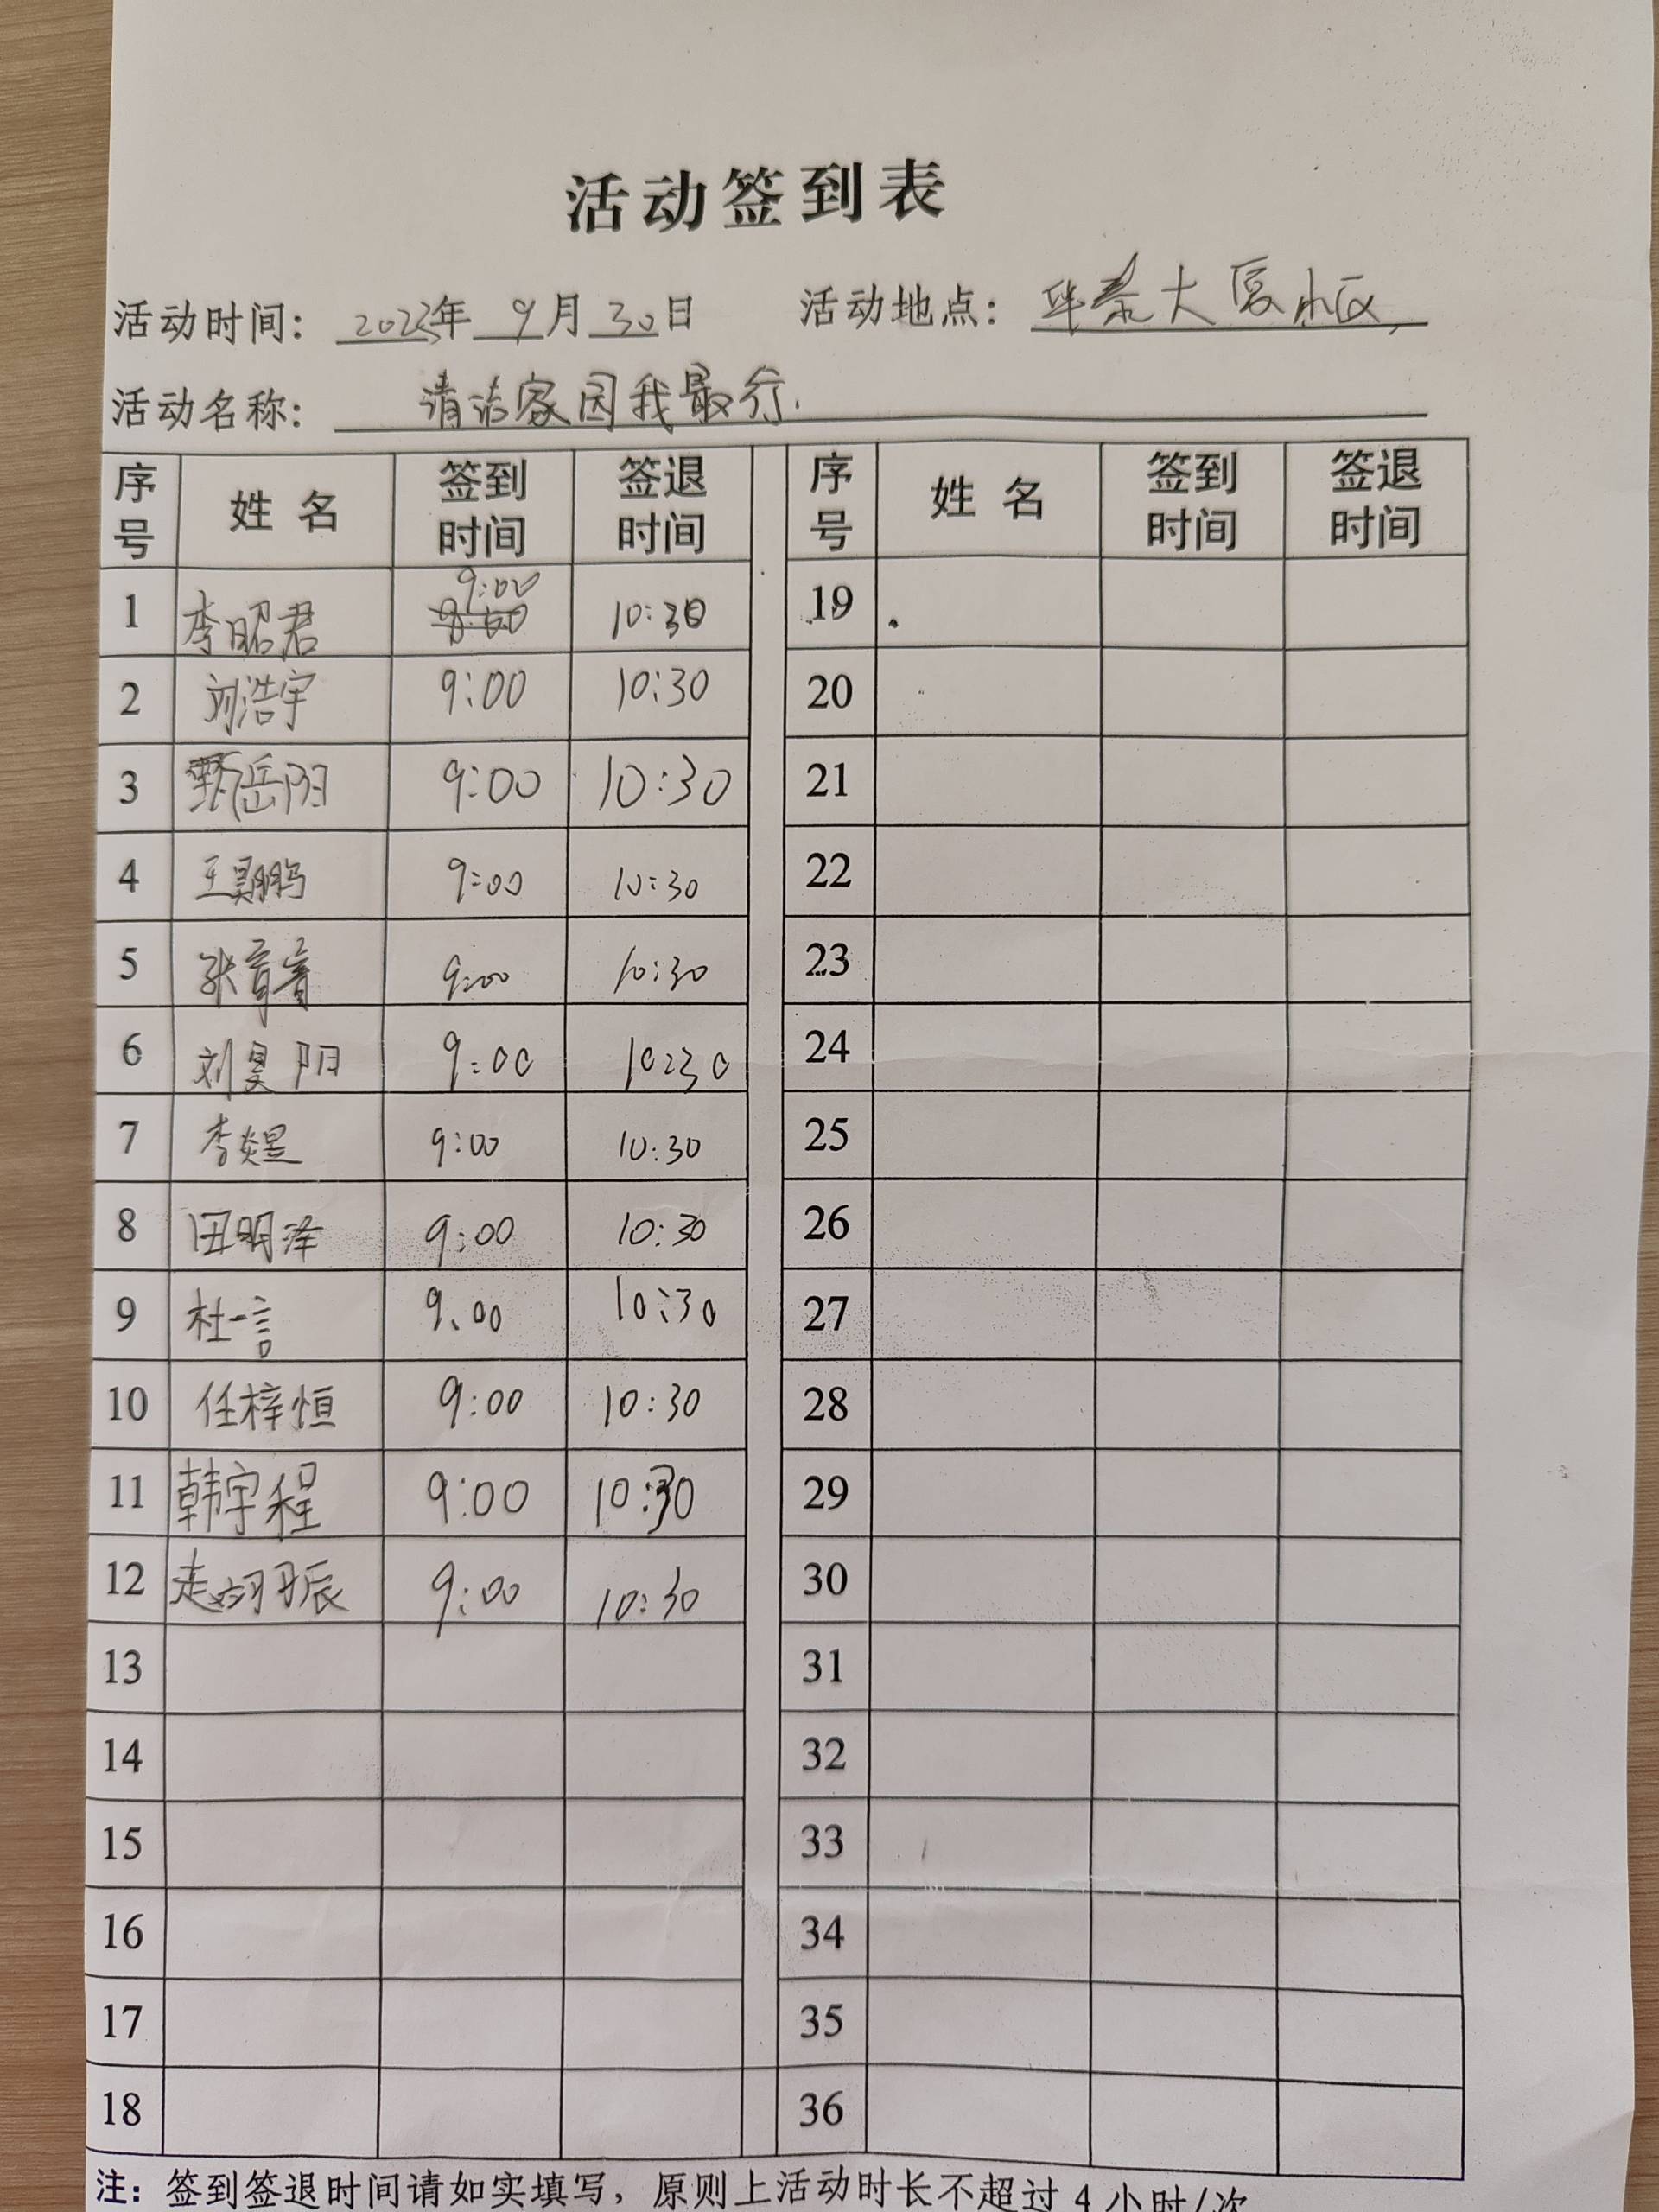 活动签到表
活动时间： 2023年 9月 30日 活动地点： 华泰大厦小区
活动名称： 清洁家园我最行.
序号 姓名 签到时间 签退时间 序号 姓名 签到时间 签退时间
1 李昭君 9:00 10:30 19
2 刘浩宇 9:00 10:30 20
3 甄岳阳 9:00 10:30 21
4 王昊鹏 9:00 10:30 22
5 张育睿 9:00 10:30 23
6 刘昊阳 9:00 10:30 24
7 李炎昱 9:00 10:30 25
8 田明泽 9:00 10:30 26
9 杜一言 9:00 10:30 27
10 任梓恒 9:00 10:30 28
11 韩宇程 9:00 10:30 29
12 9:00 10:30 30
13 31
14 32
15 33
16 34
17 35
18 36
注：签到签退时间请如实填写，原则上活动时长不超过 4 小时/次